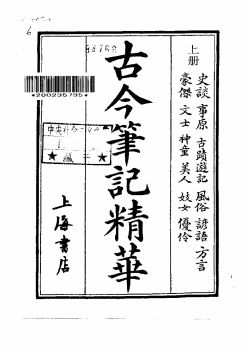 上册
史談 事原 古蹟遊記 風俗 諺語 方言
豪傑 文士 神童 美人 妓女 優伶
古今筆記精華
*200235795*
上海書店